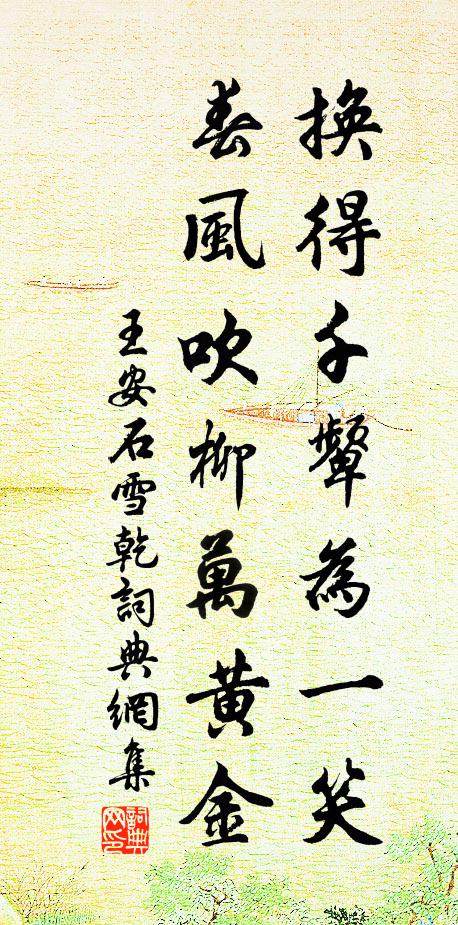 換得千顰為一笑
春風吹柳萬黃金
王安石雪乾詞典網集
詞典網印